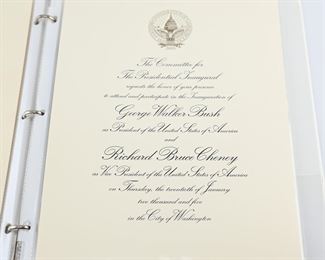 The Committee for
The Presidential Inaugural
requests the honor of your presence
to attend and participate in the Inauguration of
George Walker Bush
as President of the United States of America
and
Richard Bruce Cheney
as Vice President of the United States of America
on Thursday, the twentieth of January
two thousand and five
in the City of Washington